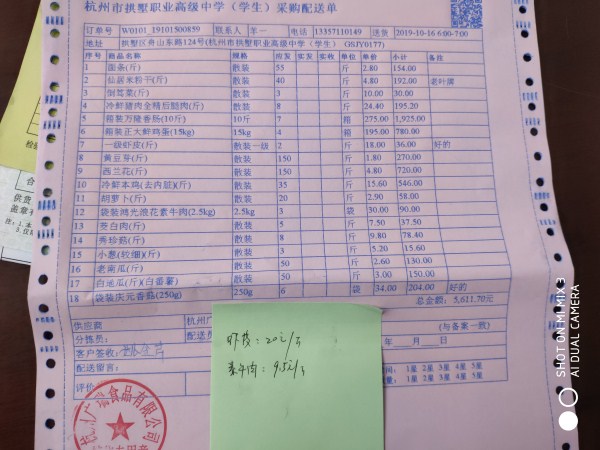 杭州市拱墅职业高级中学（学生）采购配送单
订单号 W0101_19101500859 联系人 羊一 电话 13357110149 送货 2019-10-16 6:00-7:00
地址 拱墅区舟山东路124号(杭州市拱墅职业高级中学（学生） GSJY0177)
序号 商品名称 规格 应发 实发 实收 单位 单价 小计 备注
1 面条(斤) 散装 55 斤 2.80 154.00
2 仙居米粉干(斤) 散装 40 斤 4.80 192.00 老叶需
3 倒笃菜(斤) 散装 3 斤 10.00 30.00
4 冷鲜猪肉全精后腿肉(斤) 散装 8 斤 24.40 195.20
5 箱装万隆香肠(10斤) 10斤 7 箱 275.00 1,925.00
6 箱装正大鲜鸡蛋(15kg) 15kg 4 箱 195.00 780.00
7 一级虾皮(斤) 散装一级 2 斤 18.00 36.00 好的
8 黄豆芽(斤) 散装 150 斤 1.80 270.00
9 西兰花(斤) 散装 150 斤 4.80 720.00
10 冷鲜本鸡(去内脏)(斤) 散装 35 斤 15.60 546.00
11 胡萝卜(斤) 散装 20 斤 2.90 58.00
12 袋装鸿光浪花素牛肉(2.5kg) 2.5kg 3 袋 30.00 90.00
13 茭白肉(斤) 散装 5 斤 7.50 37.50
14 秀珍菇(斤) 散装 8 斤 9.80 78.40
15 小葱(较细)(斤) 散装 3 斤 5.20 15.60
16 老南瓜(斤) 散装 50 斤 2.60 130.00
17 白地瓜(斤)(白番薯) 散装 50 斤 3.00 150.00
18 袋装庆元香菇(250g) 250g 6 袋 34.00 204.00 好的
总金额: 5,611.70元
供应商 杭州广 (与备案一致)
分拣员: 配送员 年 月 日
客户签收:
配送留言:
评价 1星 2星 3星 4星 5星
1星 2星 3星 4星 5星
虾皮: 20元/斤
素牛肉: 95元/
食品有限公司
SHOT ON MI MIX 3
AI DUAL CAMERA